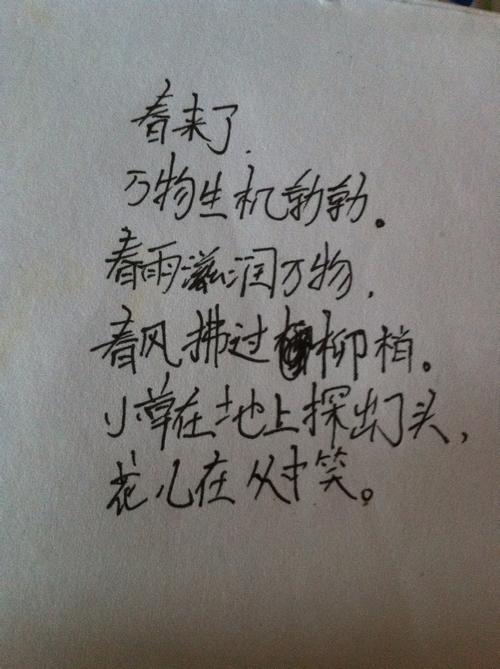 春来了.
万物生机勃勃。
春雨滋润万物，
春风拂过柳梢。
小草在地上探出了头，
花儿在丛中笑。